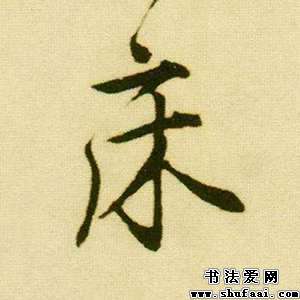 床
书法爱网
www.shufaai.com